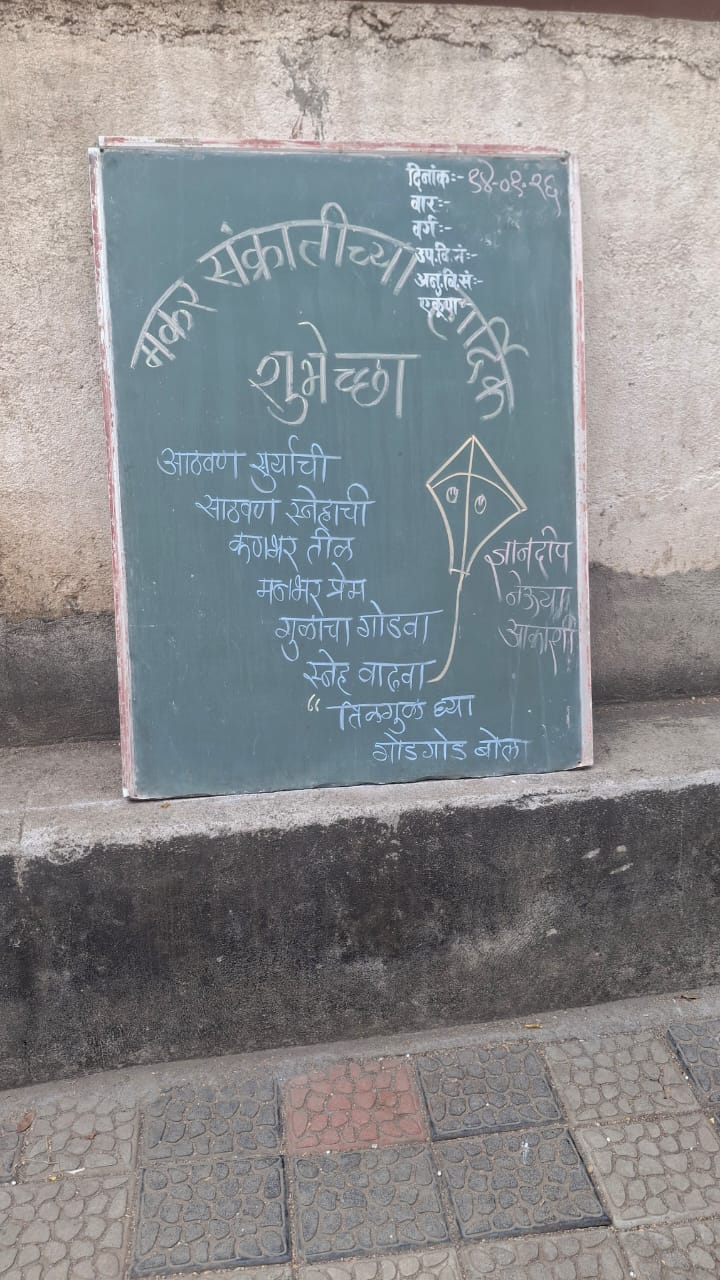 दिनांक:- १४-०१-२६
वार:-
वर्ग:-
उप.वि.नं:-
अनु.वि.सं:-
एकूण:-
मकर संक्रातीच्या हार्दिक
शुभेच्छा
आठवण सुर्याची
साठवण स्नेहाची
कणभर तीळ
मनभर प्रेम
गुळाचा गोडवा
स्नेह वाढवा
“ तिळगुळ घ्या
गोडगोड बोला
ज्ञानदीप
नेऊया
आकाशी